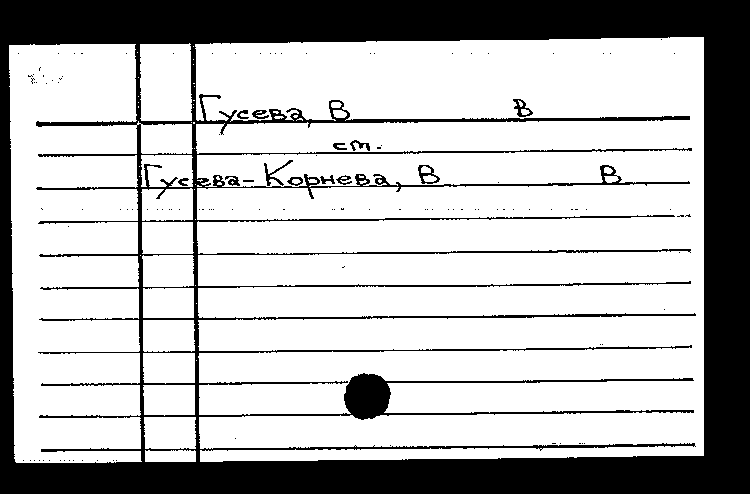 Гусева, В В
ст.
Гусева-Корнева, В В